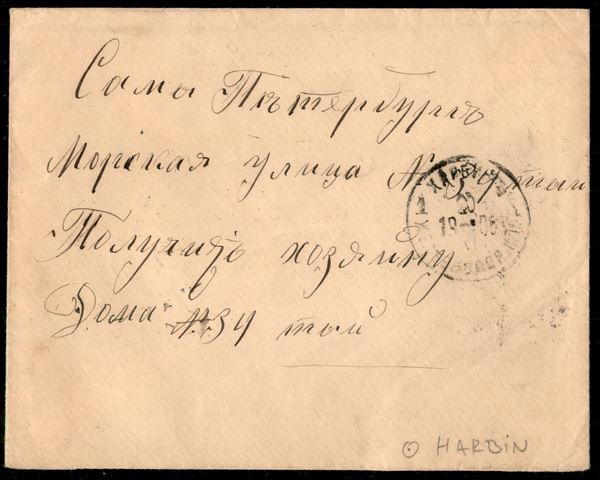 Самы Пѣтербургъ
Морская улица № 34 тый
Получить хозяину
Дома № 34 тый
ХАРБИНЪ
20
19 05
⊙ HARBIN